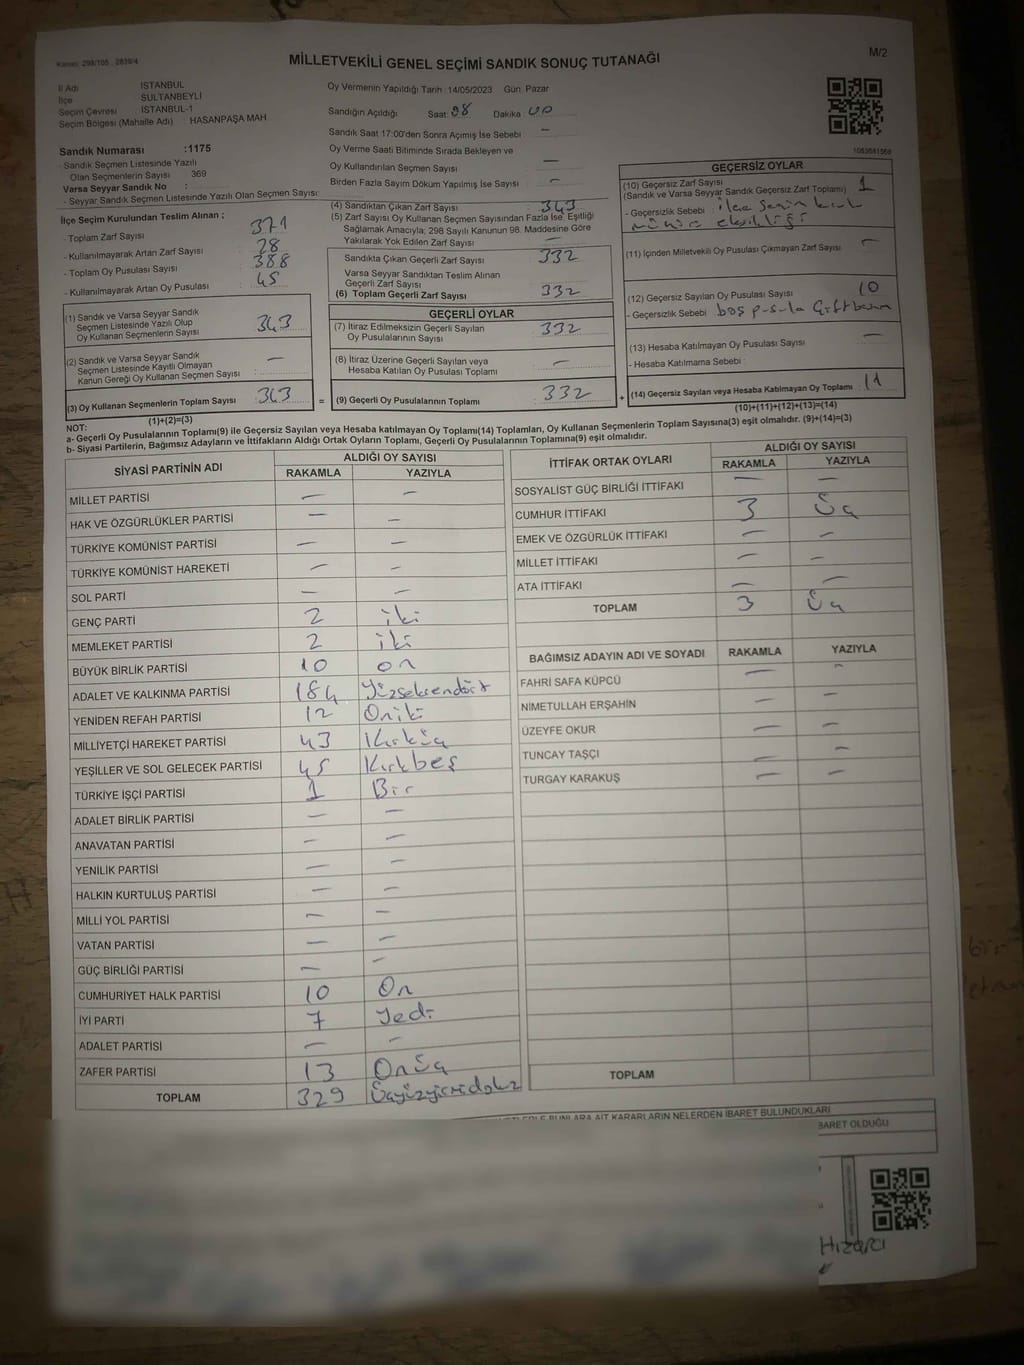 Kanun: 298/105 , 2839/4
MİLLETVEKİLİ GENEL SEÇİMİ SANDIK SONUÇ TUTANAĞI
M/2
İl Adı İSTANBUL
İlçe SULTANBEYLİ
Seçim Çevresi İSTANBUL-1
Seçim Bölgesi (Mahalle Adı) : HASANPAŞA MAH
Sandık Numarası :1175
- Sandık Seçmen Listesinde Yazılı
Olan Seçmenlerin Sayısı 369
Varsa Seyyar Sandık No :
- Seyyar Sandık Seçmen Listesinde Yazılı Olan Seçmen Sayısı:
İlçe Seçim Kurulundan Teslim Alınan ;
- Toplam Zarf Sayısı 371
- Kullanılmayarak Artan Zarf Sayısı 28
- Toplam Oy Pusulası Sayısı 388
- Kullanılmayarak Artan Oy Pusulası 45
(1) Sandık ve Varsa Seyyar Sandık
Seçmen Listesinde Yazılı Olup
Oy Kullanan Seçmenlerin Sayısı 343
(2) Sandık ve Varsa Seyyar Sandık
Seçmen Listesinde Kayıtlı Olmayan
Kanun Gereği Oy Kullanan Seçmen Sayısı : —
(3) Oy Kullanan Seçmenlerin Toplam Sayısı 343 =
(1)+(2)=(3)
Oy Vermenin Yapıldığı Tarih : 14/05/2023 Gün: Pazar
Sandığın Açıldığı Saat: 08 Dakika: 00
Sandık Saat 17:00'den Sonra Açımış İse Sebebi —
Oy Verme Saati Bitiminde Sırada Bekleyen ve
Oy Kullandırılan Seçmen Sayısı —
Birden Fazla Sayım Döküm Yapılmış İse Sayısı —
(4) Sandıktan Çıkan Zarf Sayısı 343
(5) Zarf Sayısı Oy Kullanan Seçmen Sayısından Fazla İse, Eşitliği
Sağlamak Amacıyla; 298 Sayılı Kanunun 98. Maddesine Göre
Yakılarak Yok Edilen Zarf Sayısı —
Sandıkta Çıkan Geçerli Zarf Sayısı 332
Varsa Seyyar Sandıktan Teslim Alınan
Geçerli Zarf Sayısı
(6) Toplam Geçerli Zarf Sayısı 332
GEÇERLİ OYLAR
(7) İtiraz Edilmeksizin Geçerli Sayılan
Oy Pusulalarının Sayısı 332
(8) İtiraz Üzerine Geçerli Sayılan veya
Hesaba Katılan Oy Pusulası Toplamı —
(9) Geçerli Oy Pusulalarının Toplamı 332 +
1083681568
GEÇERSİZ OYLAR
(10) Geçersiz Zarf Sayısı 1
(Sandık ve Varsa Seyyar Sandık Geçersiz Zarf Toplamı)
- Geçersizlik Sebebi : ilçe Seçim kurul
mühür eksikliği
(11) İçinden Milletvekili Oy Pusulası Çıkmayan Zarf Sayısı —
(12) Geçersiz Sayılan Oy Pusulası Sayısı 10
- Geçersizlik Sebebi boş pusula Çift basım
(13) Hesaba Katılmayan Oy Pusulası Sayısı —
- Hesaba Katılmama Sebebi :
(14) Geçersiz Sayılan veya Hesaba Katılmayan Oy Toplamı 11
(10)+(11)+(12)+(13)=(14)
NOT:
a- Geçerli Oy Pusulalarının Toplamı(9) ile Geçersiz Sayılan veya Hesaba katılmayan Oy Toplamı(14) Toplamları, Oy Kullanan Seçmenlerin Toplam Sayısına(3) eşit olmalıdır. (9)+(14)=(3)
b- Siyasi Partilerin, Bağımsız Adayların ve İttifakların Aldığı Ortak Oyların Toplamı, Geçerli Oy Pusulalarının Toplamına(9) eşit olmalıdır.
SİYASİ PARTİNİN ADI ALDIĞI OY SAYISI
RAKAMLA YAZIYLA
MİLLET PARTİSİ — —
HAK VE ÖZGÜRLÜKLER PARTİSİ — —
TÜRKİYE KOMÜNİST PARTİSİ — —
TÜRKİYE KOMÜNİST HAREKETİ — —
SOL PARTİ — —
GENÇ PARTİ 2 iki
MEMLEKET PARTİSİ 2 iki
BÜYÜK BİRLİK PARTİSİ 10 on
ADALET VE KALKINMA PARTİSİ 184 Yüzseksendört
YENİDEN REFAH PARTİSİ 12 Oniki
MİLLİYETÇİ HAREKET PARTİSİ 43 Kırküç
YEŞİLLER VE SOL GELECEK PARTİSİ 45 Kırkbeş
TÜRKİYE İŞÇİ PARTİSİ 1 Bir
ADALET BİRLİK PARTİSİ — —
ANAVATAN PARTİSİ — —
YENİLİK PARTİSİ — —
HALKIN KURTULUŞ PARTİSİ — —
MİLLİ YOL PARTİSİ — —
VATAN PARTİSİ — —
GÜÇ BİRLİĞİ PARTİSİ — —
CUMHURİYET HALK PARTİSİ 10 On
İYİ PARTİ 7 Yedi
ADALET PARTİSİ — —
ZAFER PARTİSİ 13 Onüç
TOPLAM 329 Üçyüzyirmidokuz
İTTİFAK ORTAK OYLARI ALDIĞI OY SAYISI
RAKAMLA YAZIYLA
SOSYALİST GÜÇ BİRLİĞİ İTTİFAKI — —
CUMHUR İTTİFAKI 3 Üç
EMEK VE ÖZGÜRLÜK İTTİFAKI — —
MİLLET İTTİFAKI — —
ATA İTTİFAKI — —
TOPLAM 3 Üç
BAĞIMSIZ ADAYIN ADI VE SOYADI RAKAMLA YAZIYLA
FAHRİ SAFA KÜPCÜ — —
NİMETULLAH ERŞAHİN — —
ÜZEYFE OKUR — —
TUNCAY TAŞÇI — —
TURGAY KARAKUŞ — —
TOPLAM
BUNLARA AİT KARARLARIN NELERDEN İBARET BULUNDUKLARI
BARET OLDUĞU
Hızarcı
bir